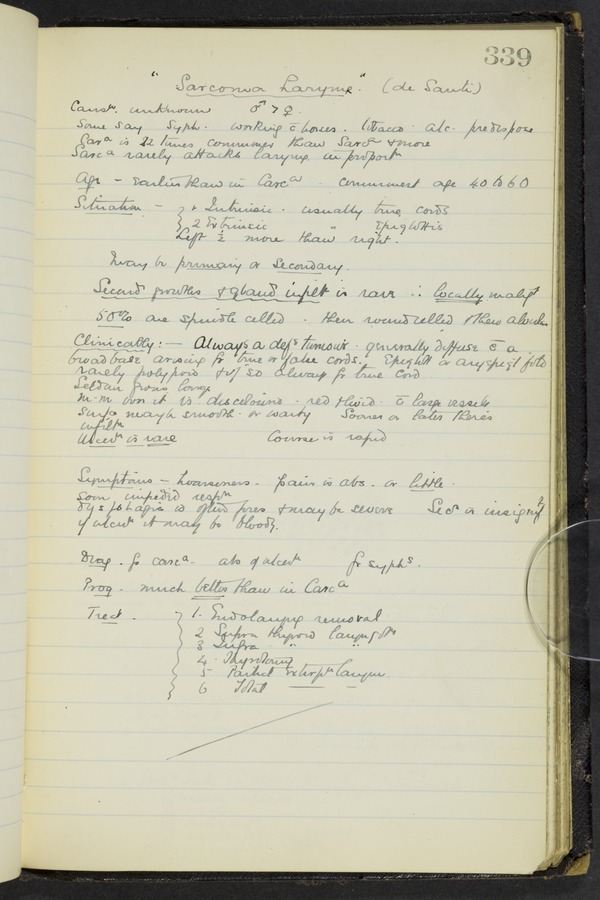 339
"Sarcoma Larynx" (de Santi)
Causn. unknown ♂ > ♀.
Some say Syph. working c̄ horses. tobacco. alc. predispose
Carca is 12 times commoner than Sarca & more
Sarca rarely attacks larynx in proportn
Age - Earlier than in Carca. commonest age 40 to 60
Situation - 1 Intrinsic. usually true cords
2 Extrinsic " Epiglottis
Left ½ more than right.
May be primary or Secondary.
Second growths & gland infilt is rare ∴ locally maligt
50% are spindle celled. then round celled then alveolar
Clinically:- Always a defs tumour. generally diffuse c̄ a
broad base arising fr true or false cords. Epiglott or aryepigt fold
rarely polypoid & if so always fr true cord
Seldom grows large
m.m over it is discoloured. red & livid. c̄ large vessels
surface maybe smooth. or warty Sooner or later there's
infiltn
Ulcern is rare Course is rapid
Symptoms - hoarseness. pain is abs. or little.
soon impeded respn
dysphagia is often pres & may be severe Secn is insignift
if ulcern it may be bloody.
Diag. fr carca. abs of ulcern fr syphs.
Prog. much better than in Carca
Treat. 1. Endolaryng removal
2 Supra thyroid laryngotm
3 Infra " "
4. Thyrotomy
5 Partial extirpn larynx
6 Total